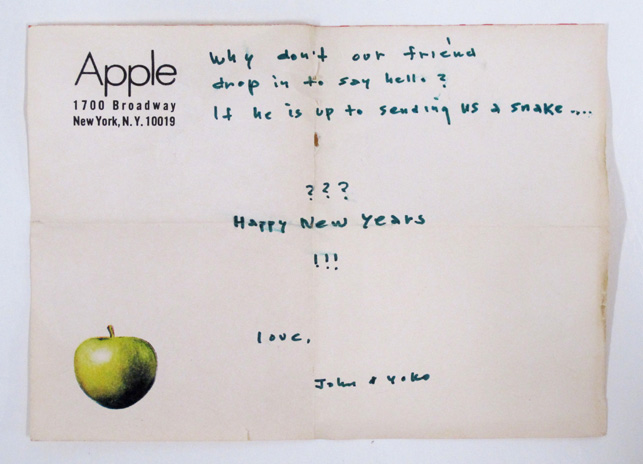 Apple
1700 Broadway
New York, N.Y. 10019
Why don't our friend
drop in to say hello?
If he is up to sending us a snake....
???
Happy New Years
!!!
love,
John & Yoko